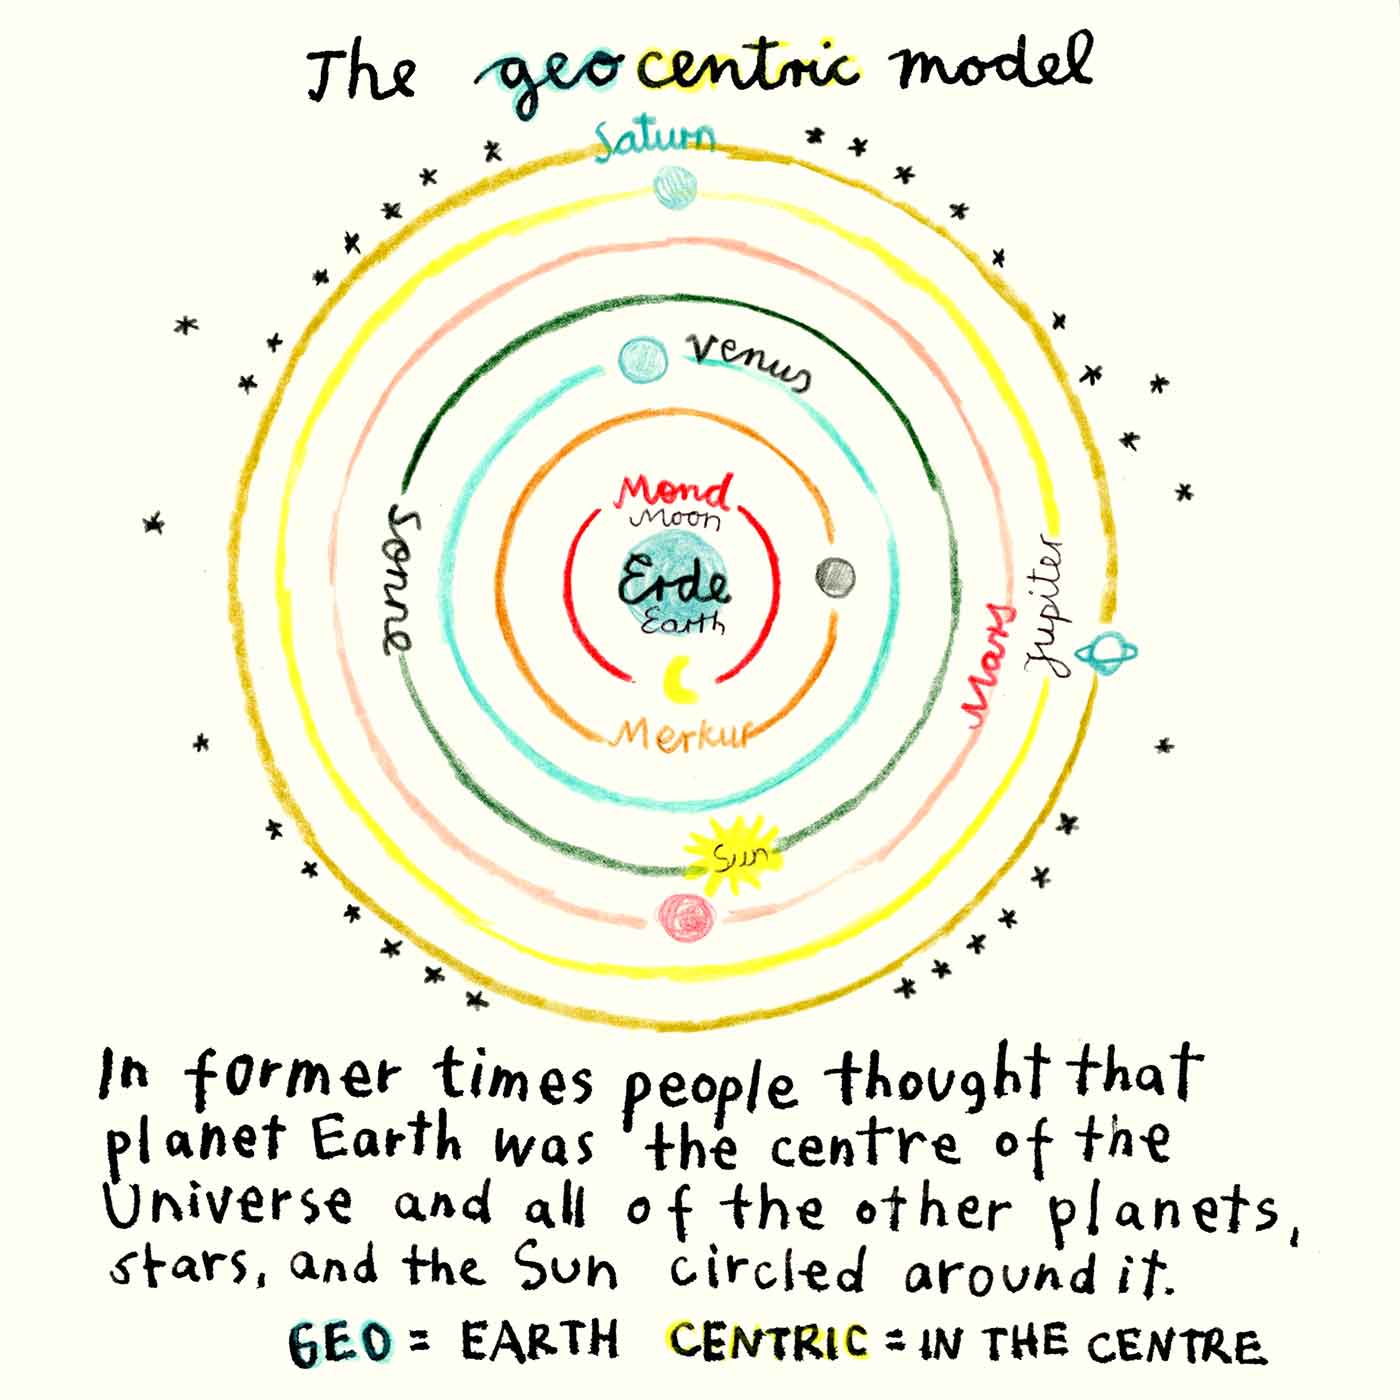 The geocentric model
Saturn
Venus
Mond
Moon
Erde
Earth
Sonne
Jupiter
Mars
Merkur
Sun
In former times people thought that
planet Earth was the centre of the
Universe and all of the other planets,
stars, and the Sun circled around it.
GEO = EARTH CENTRIC = IN THE CENTRE